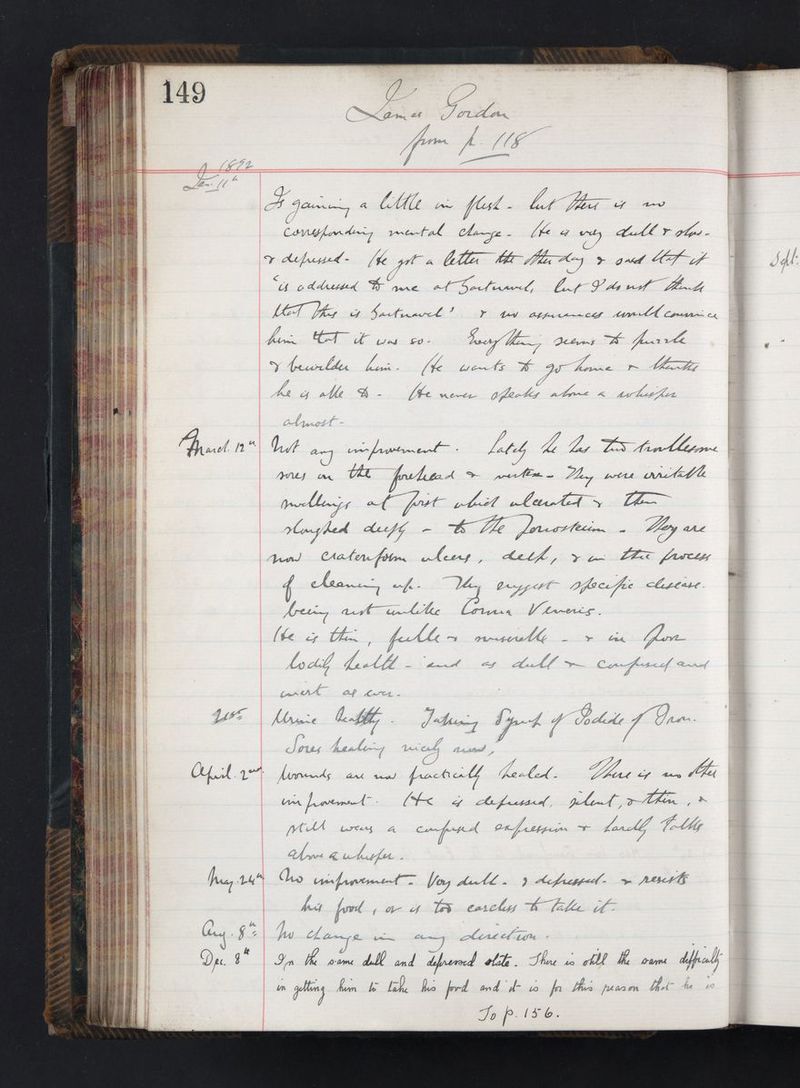 149
James Gordon
from p. 118
1892
Jan. 11th
Is gaining a little in flesh - but there is no
corresponding mental change - He is very dull & slow -
& depressed - He got a letter the other day & said that it
"is addressed to me at Gartnavel, but I do not think
that this is Gartnavel" & no assurances would convince
him that it was so. Everything seems to puzzle
& bewilder him. He wants to go home & thinks
he is able to - He never speaks above a whisper
almost -
March 12th Not any improvement. Lately he has two troublesome
sores on the forehead & vertex - They were irritable
swellings at first which ulcerated & then
sloughed deeply - to the periosteum - They are
now crateriform ulcers, deep, & in the process
of cleaning up. They suggest specific disease
being not unlike Corona Veneris.
He is thin, feeble & miserable - & in poor
bodily health - and as dull & confused and
inert as ever.
21st Urine healthy. Taking Syrup of Iodide of Iron.
Sores healing nicely now,
April 2nd Wounds are now practically healed. There is no other
improvement. He is depressed, silent, & thin, &
still wears a confused expression & hardly talks
above a whisper.
May 24th No improvement - Very dull - & depressed - & resists
his food, or is too careless to take it.
Aug. 8th No change in any direction.
Dec. 8th In the same dull and depressed state. There is still the same difficulty
in getting him to take his food and it is for this reason that he is
To p. 156.
Sept: